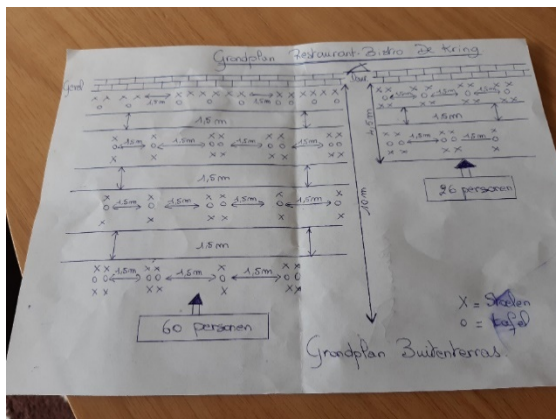 Grondplan Restaurant-Bistro De Kring
Gevel
Deur
1,5m 1,5m
1,5m
1,5m 1,5m 1,5m 1,5m
1,5m
1,5m 1,5m 1,5m 1,5m
1,5m
1,5m 1,5m 1,5m
60 personen
10m
1,5m 1,5m 1,5m
1,5m
1,5m 1,5m
4,5m
26 personen
X = Stoelen
o = tafel
Grondplan Buitenterras.